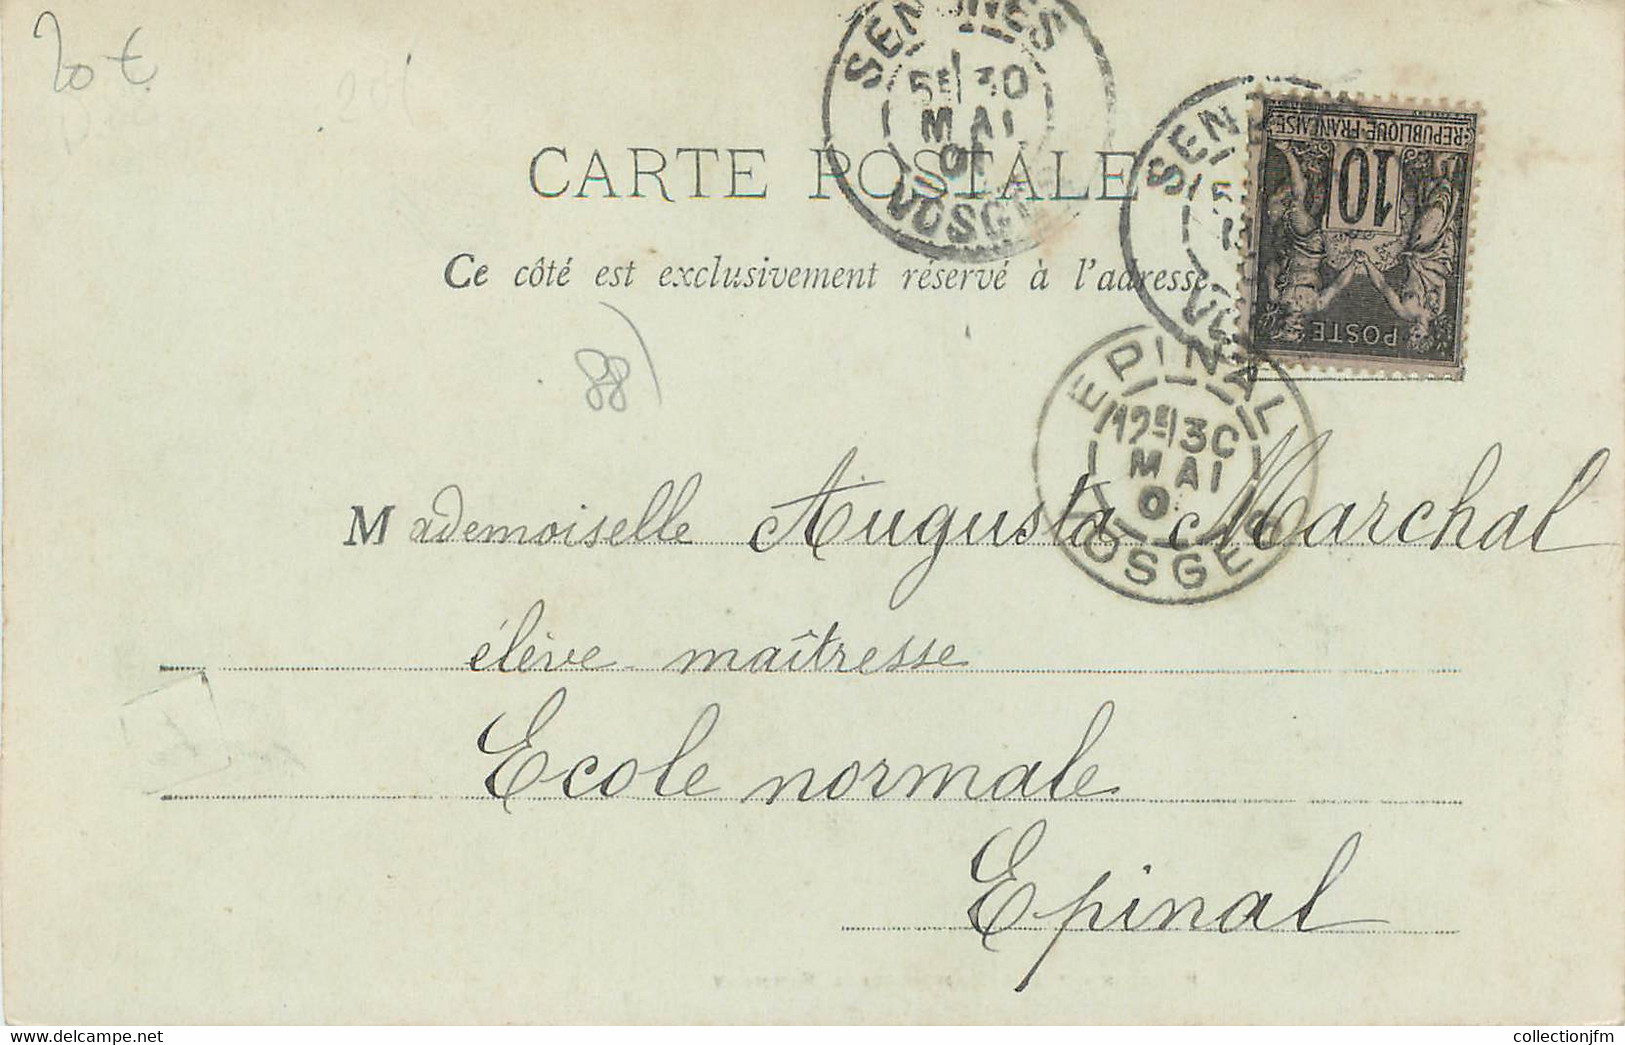 20 €
SENONES
5E 30
MAI
01
VOSGES
CARTE POSTALE
Ce côté est exclusivement réservé à l'adresse
SEN
5
VO
REPUBLIQUE FRANÇAISE
10
POSTE
88)
EPINAL
12E 30
MAI
0
VOSGES
Mademoiselle Augusta Marchal
élève-maîtresse
Ecole normale
Epinal
20.00 €
collectionjfm